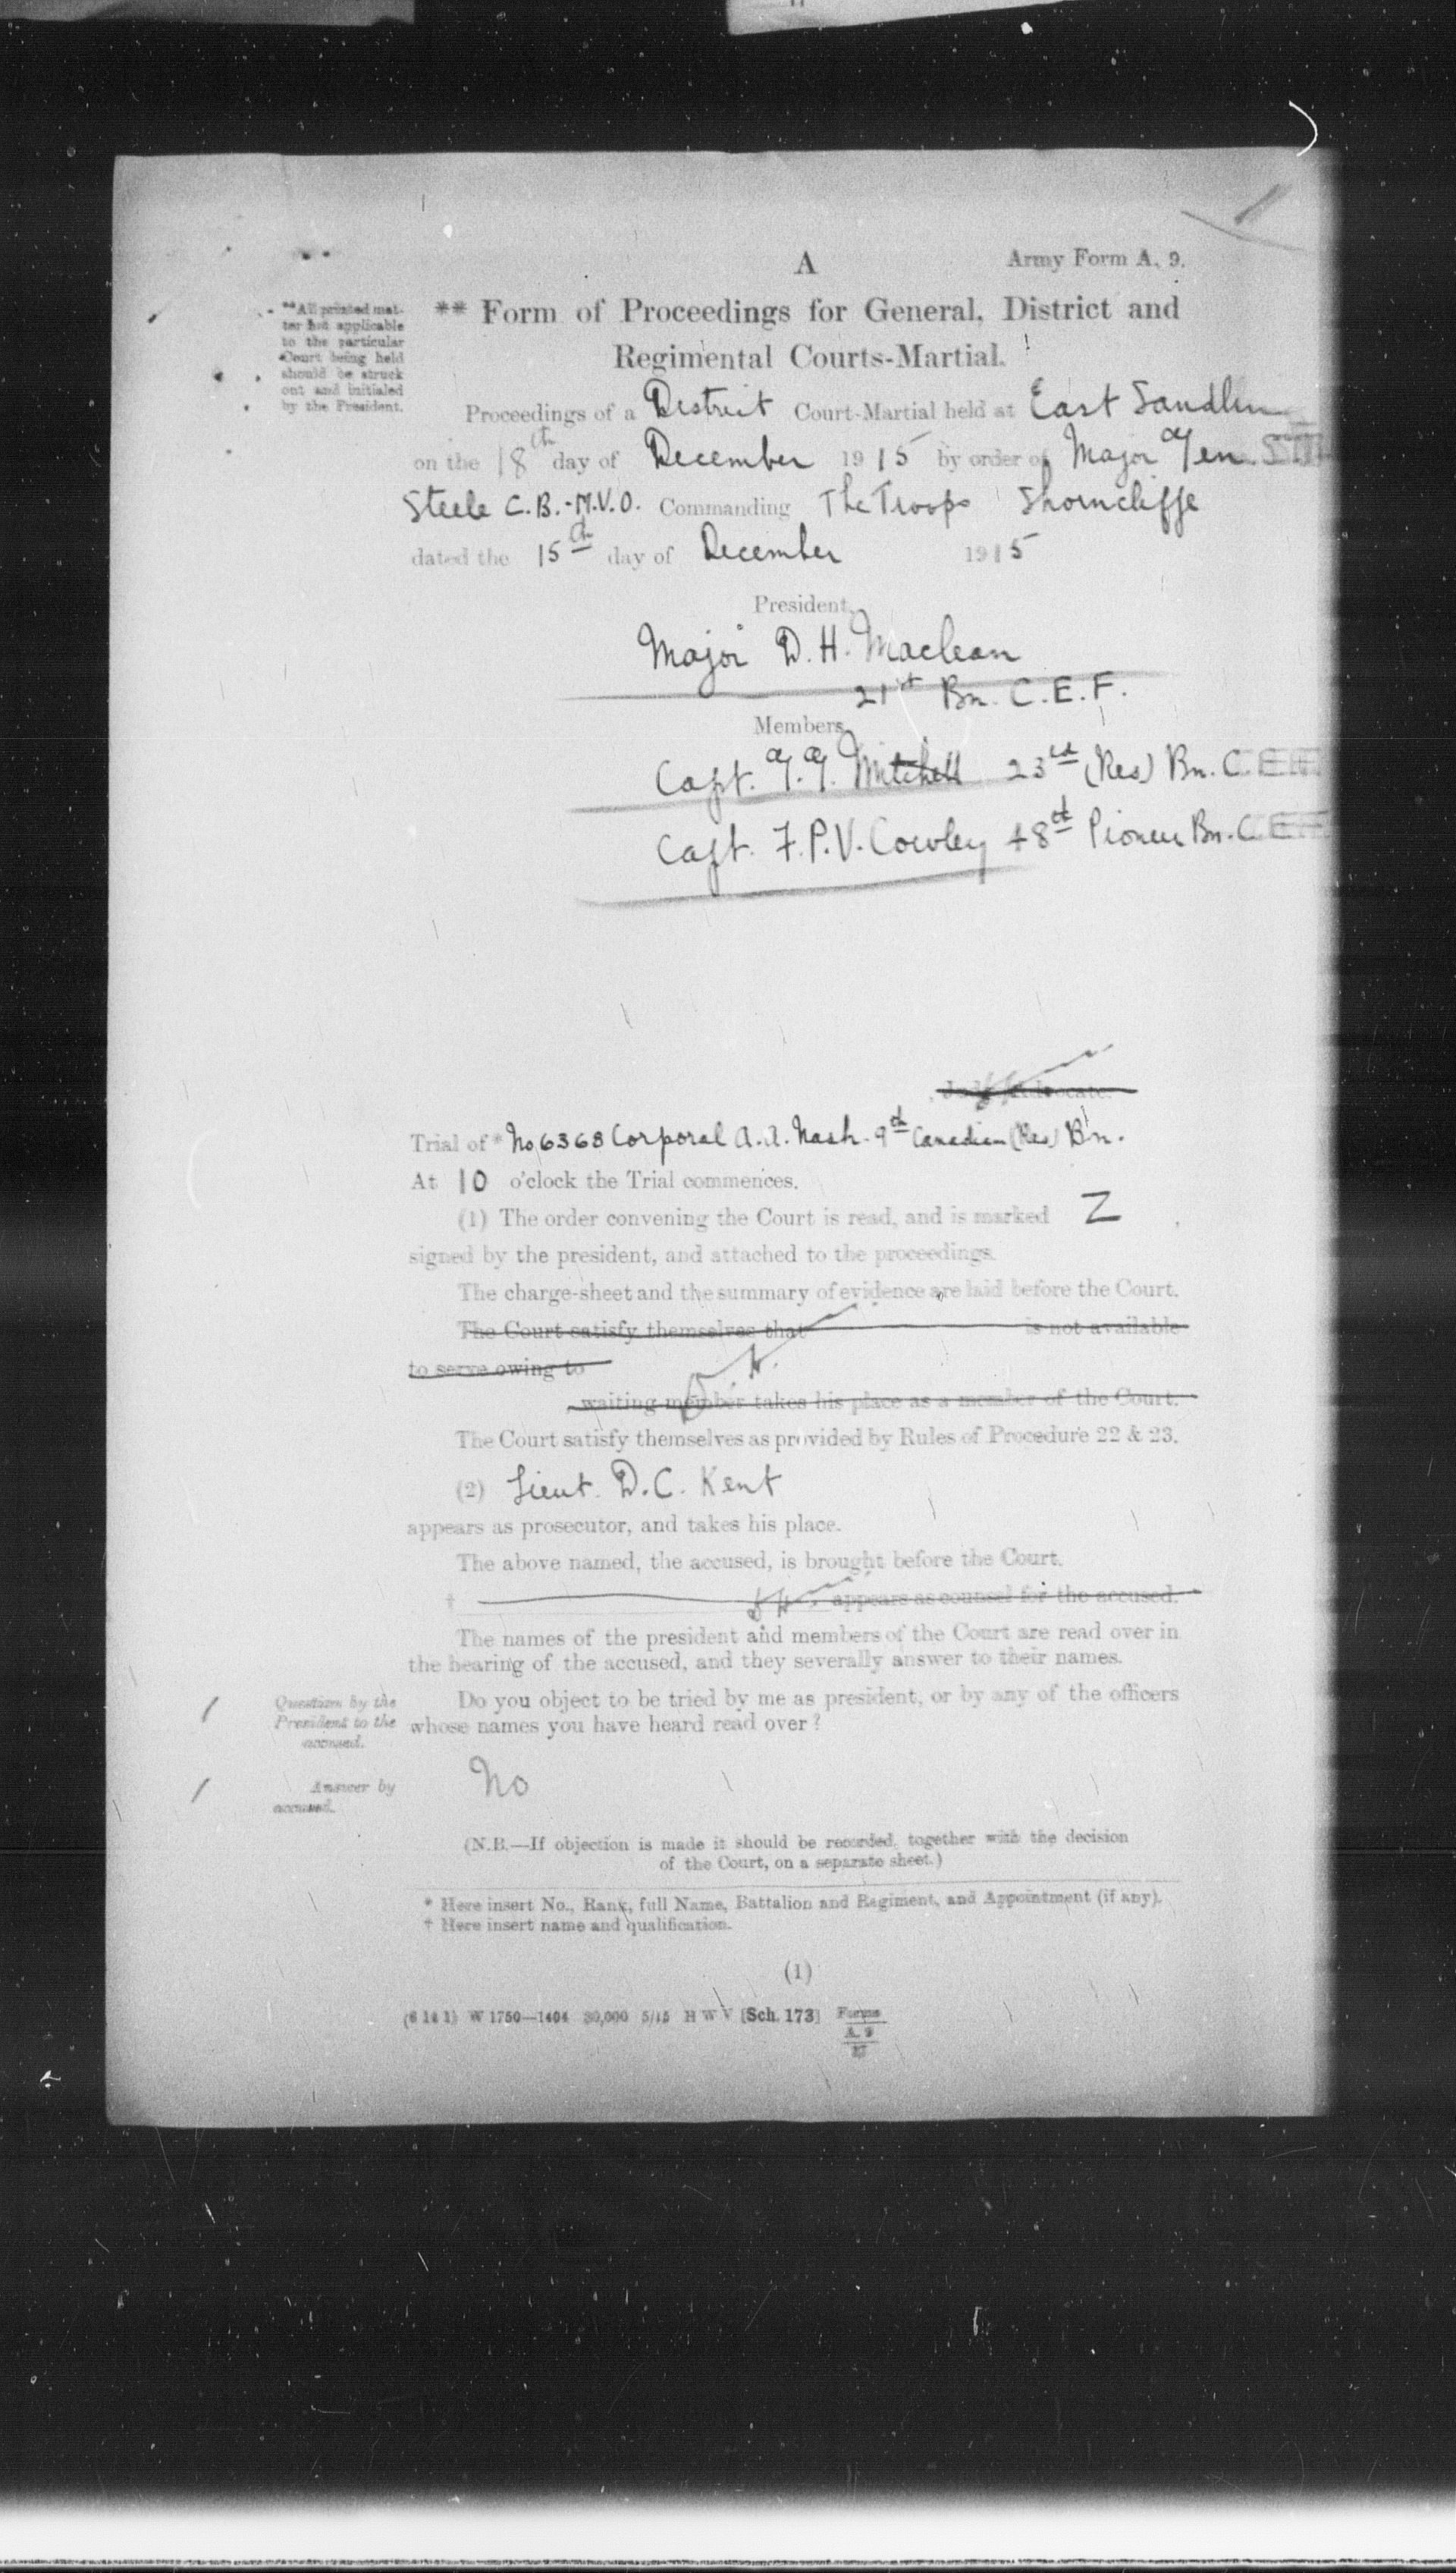 A
Army Form A. 9.
**All printed mat-
ter not applicable
to the particular
Court being held
should be struck
out and initialed
by the President.
** Form of Proceedings for General, District and
Regimental Courts-Martial.
Proceedings of a District Court-Martial held at East Sandlin
on the 18th day of December 1915 by order of Major Gen.
Steele C.B.-M.V.O. Commanding The Troops Shorncliffe
dated the 15th day of December 1915
President.
Major D. H. Maclean
21st Bn. C.E.F.
Members.
Capt. Mitchell 23rd (Res) Bn. C.E.F.
Capt. F.P.V. Cowley 48th Pioneer Bn. C.E.F.
Judge Advocate.
Trial of* No 6368 Corporal A.A. Nash. 9th Canadian (Res) Bn.
At 10 o'clock the Trial commences.
(1) The order convening the Court is read, and is marked Z
signed by the president, and attached to the proceedings.
The charge-sheet and the summary of evidence are laid before the Court.
The Court satisfy themselves that is not available
to serve owing to
waiting member takes his place as a member of the Court.
The Court satisfy themselves as provided by Rules of Procedure 22 & 23.
(2) Lieut. D.C. Kent
appears as prosecutor, and takes his place.
The above named, the accused, is brought before the Court.
† appears as counsel for the accused.
The names of the president and members of the Court are read over in
the hearing of the accused, and they severally answer to their names.
Question by the
President to the
accused.
Do you object to be tried by me as president, or by any of the officers
whose names you have heard read over?
Answer by
accused.
No
(N.B.—If objection is made it should be recorded, together with the decision
of the Court, on a separate sheet.)
* Here insert No., Rank, full Name, Battalion and Regiment, and Appointment (if any).
† Here insert name and qualification.
(1)
W 1750—1404 30,000 5/15 H W V [Sch. 173] Forms
A. 9